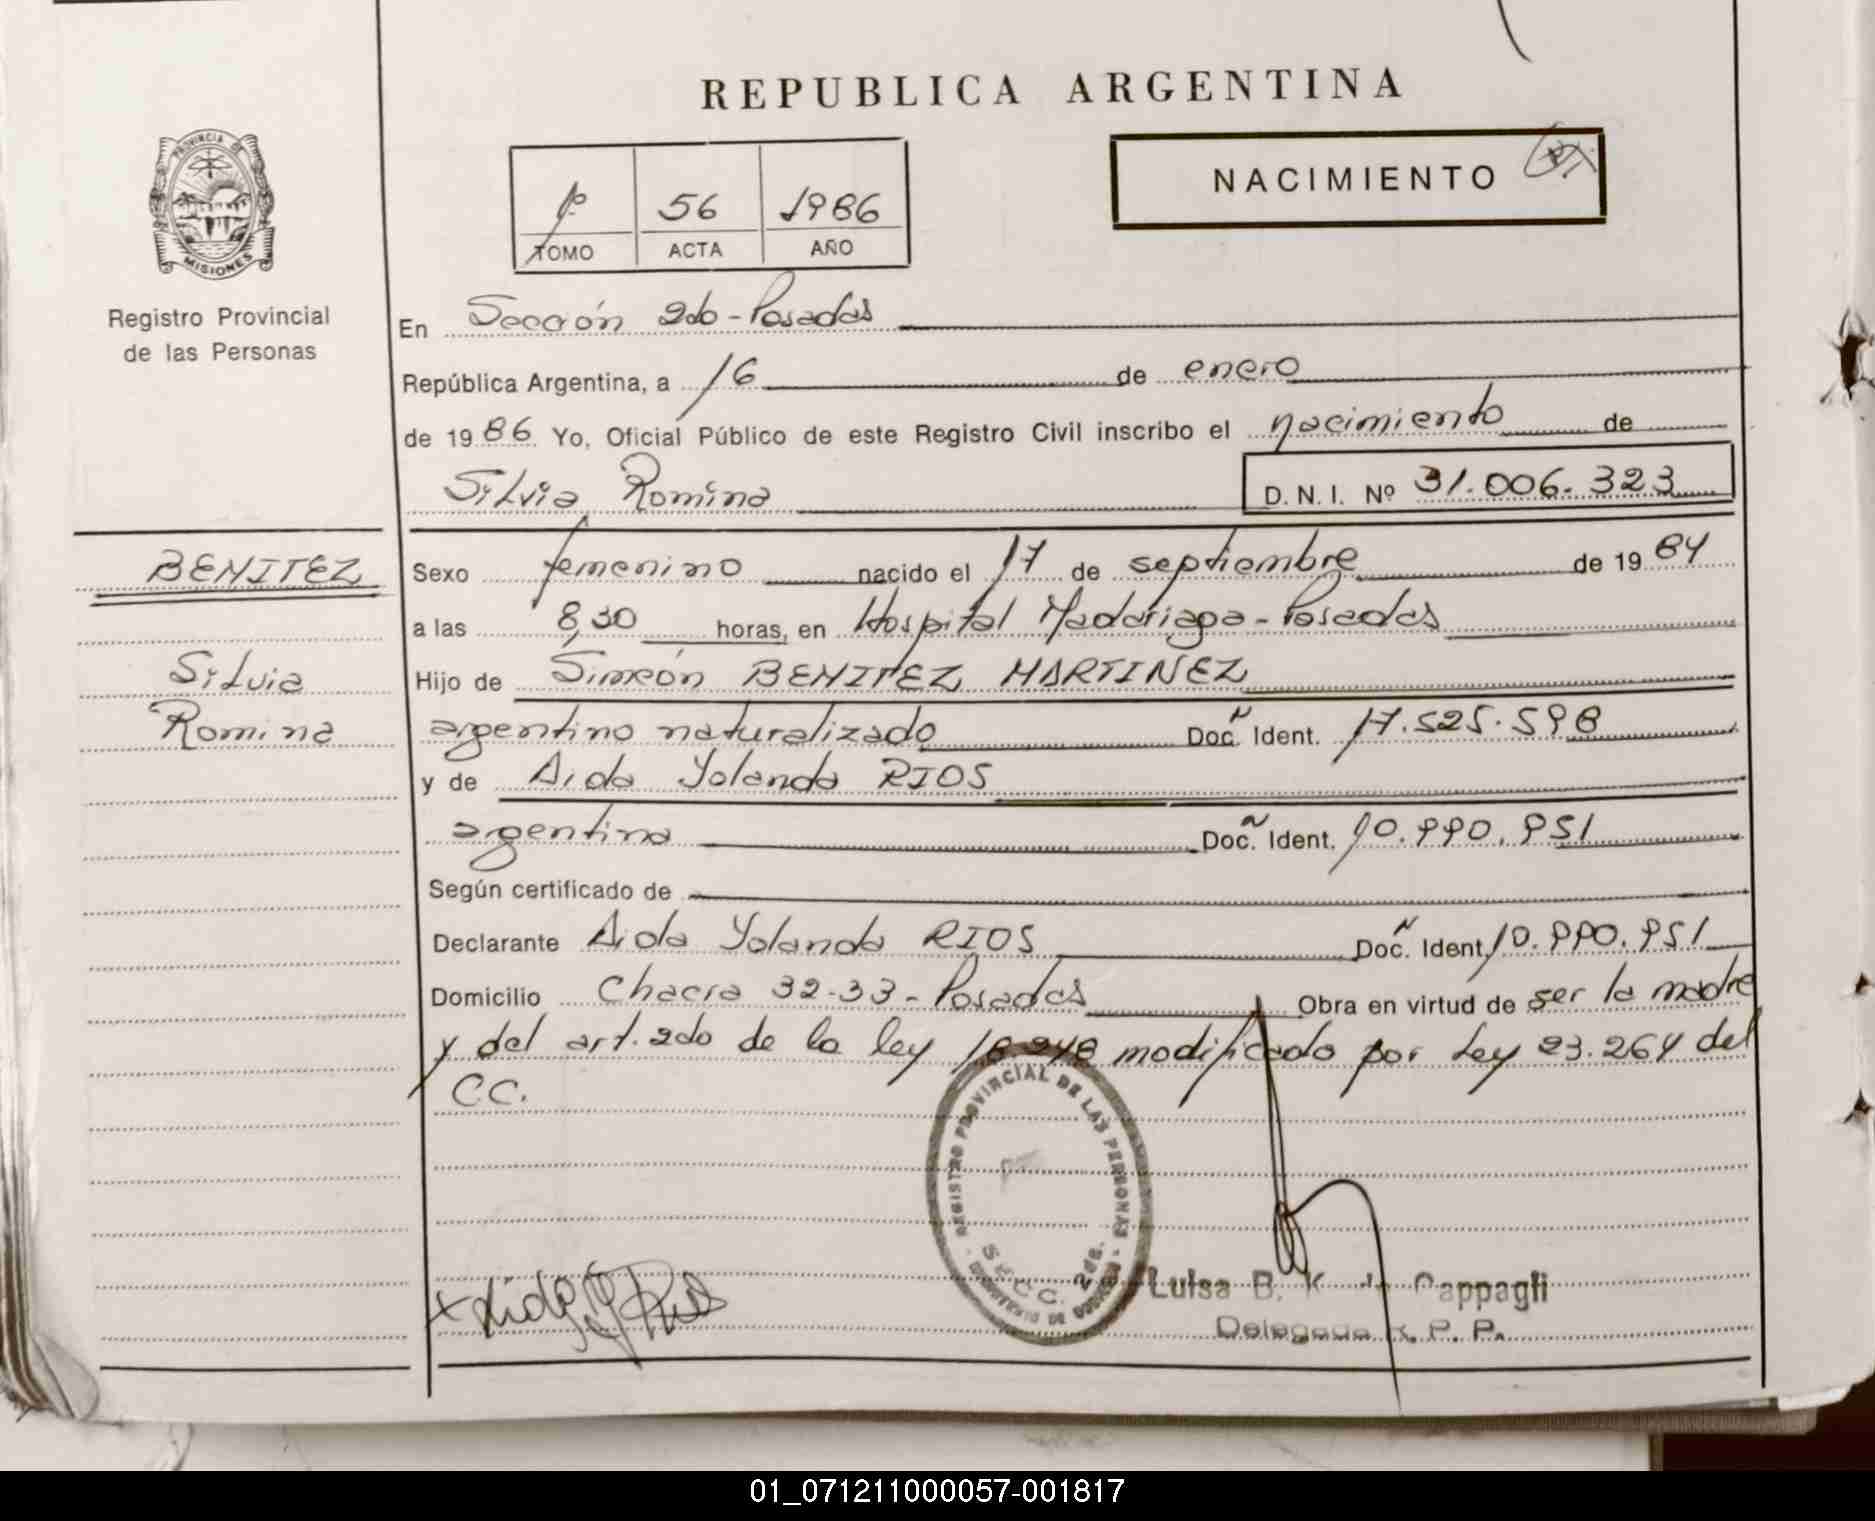 REPUBLICA ARGENTINA
PROVINCIA DE
MISIONES
Registro Provincial
de las Personas
1º 56 1986
TOMO ACTA AÑO
NACIMIENTO
En Sección 2do - Posadas
República Argentina, a 16 de enero
de 1986 Yo, Oficial Público de este Registro Civil inscribo el nacimiento de
Silvia Romina
D. N. I. Nº 31.006.323
BENITEZ
Silvia
Romina
Sexo femenino nacido el 17 de septiembre de 1984
a las 8,30 horas, en Hospital Madariaga - Posadas
Hijo de Simeón BENITEZ MARTINEZ
argentino naturalizado Doc. Ident. 17.525.598
y de Aida Yolanda RIOS
argentina Doc. Ident. 10.990.951
Según certificado de
Declarante Aida Yolanda RIOS Doc. Ident. 10.990.951
Domicilio Chacra 32-33 - Posadas Obra en virtud de ser la madre
y del art. 2do de la ley 18.248 modificado por Ley 23.264 del
C.C.
REGISTRO PROVINCIAL DE LAS PERSONAS
SECC. 2da.
Luisa B. K. Cappagli
Delegada R. P. P.
01_071211000057-001817